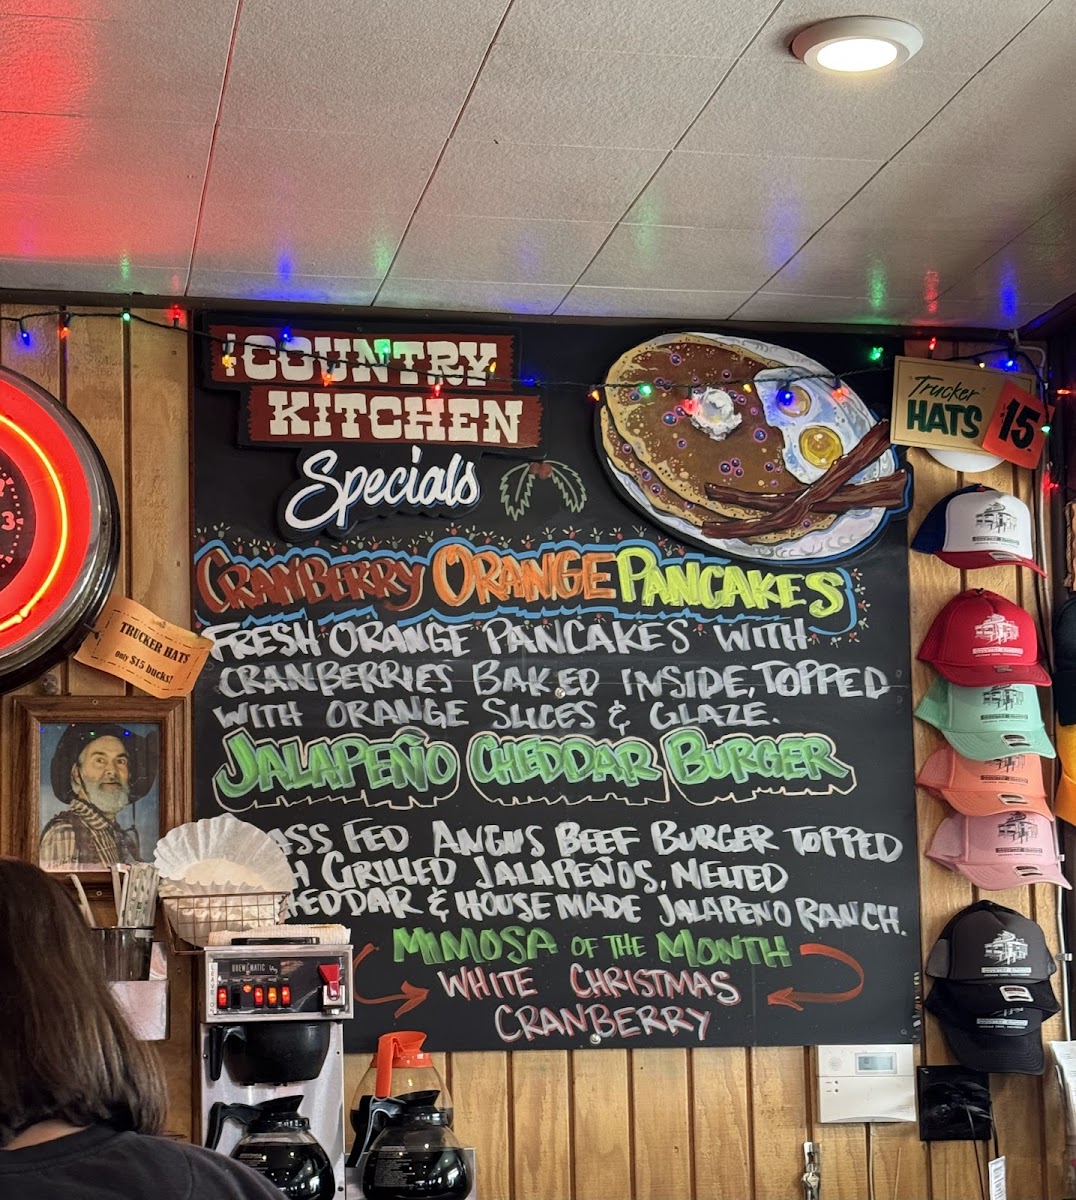 COUNTRY
KITCHEN
Specials
Trucker
HATS
$15.
CRANBERRY ORANGE PANCAKES
FRESH ORANGE PANCAKES WITH
CRANBERRIES BAKED INSIDE, TOPPED
WITH ORANGE SLICES & GLAZE.
JALAPEÑO CHEDDAR BURGER
ASS FED ANGUS BEEF BURGER TOPPED
H GRILLED JALAPEÑOS, MELTED
HEDDAR & HOUSE MADE JALAPENO RANCH.
MIMOSA OF THE MONTH
WHITE CHRISTMAS
CRANBERRY
3
TRUCKER HATS
only $15 bucks!
BREWMATIC